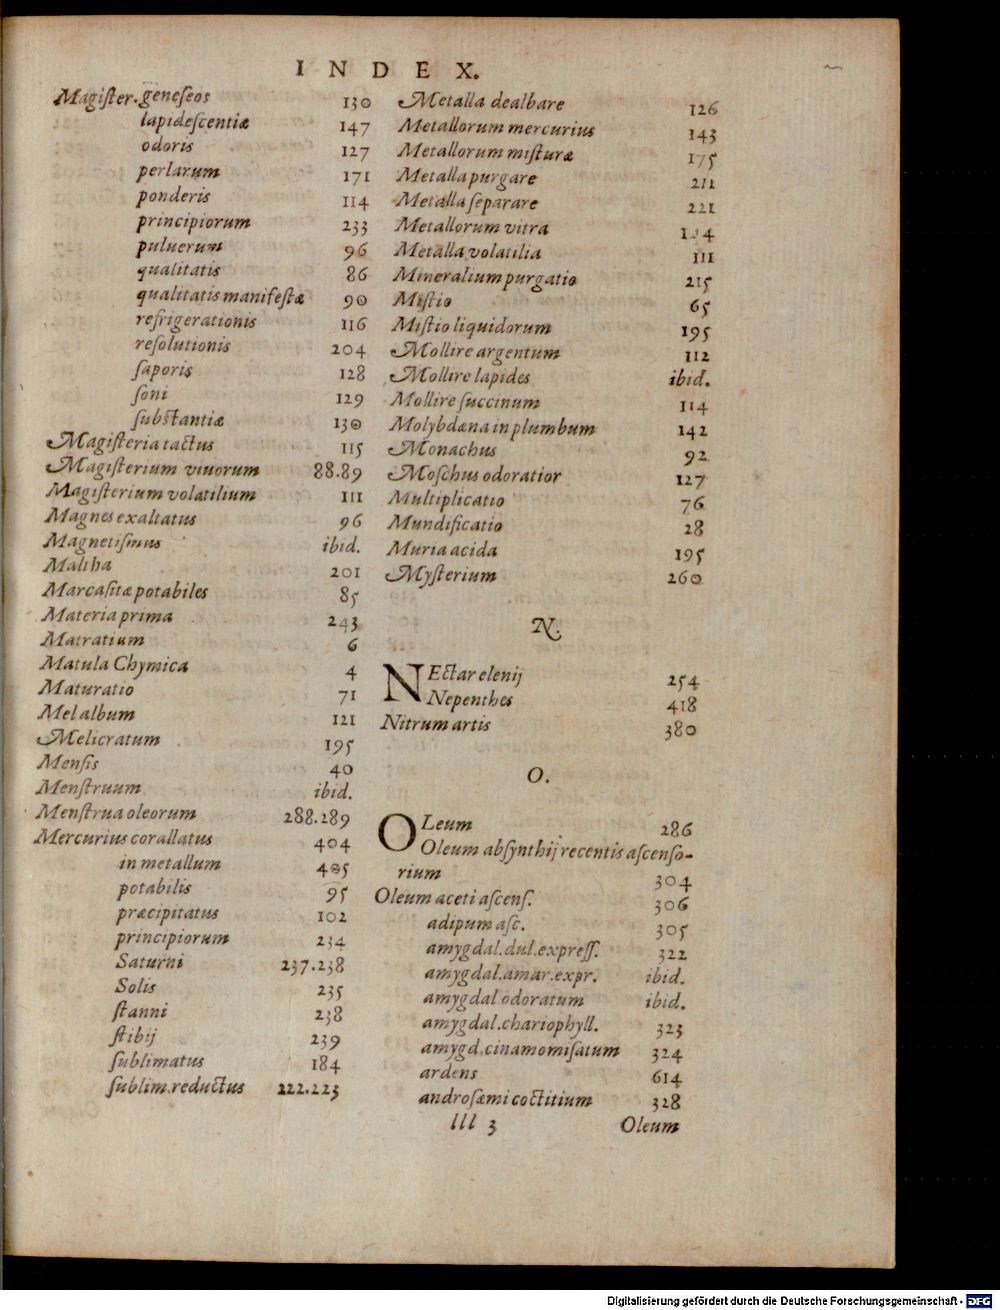 INDEX.
Magiſter. geneſeos 130
lapideſcentiæ 147
odoris 127
perlarum 171
ponderis 114
principiorum 233
puluerum 96
qualitatis 86
qualitatis manifeſtæ 90
refrigerationis 116
reſolutionis 204
ſaporis 128
ſoni 129
ſubſtantiæ 130
Magiſteria tactus 115
Magiſterium viuorum 88.89
Magiſterium volatilium 111
Magnes exaltatus 96
Magnetiſmus ibid.
Maltha 201
Marcaſitæ potabiles 85
Materia prima 243
Matratium 6
Matula Chymica 4
Maturatio 71
Mel album 121
Melicratum 195
Menſis 40
Menſtruum ibid.
Menſtrua oleorum 288.289
Mercurius corallatus 404
in metallum 405
potabilis 95
præcipitatus 102
principiorum 234
Saturni 237.238
Solis 235
ſtanni 238
ſtibij 239
ſublimatus 184
ſublim.reductus 222.223
Metalla dealbare 126
Metallorum mercurius 143
Metallorum miſturæ 175
Metalla purgare 211
Metalla ſeparare 221
Metallorum vitra
Metalla volatilia 111
Mineralium purgatio 215
Miſtio 65
Miſtio liquidorum 195
Mollire argentum 112
Mollire lapides ibid.
Mollire ſuccinum 114
Molybdæna in plumbum 142
Monachus 92
Moſchus odoratior 127
Multiplicatio 76
Mundificatio 28
Muria acida 195
Myſterium 260
N.
NEctar elenij 254
Nepenthes 418
Nitrum artis 380
O.
OLeum 286
Oleum abſynthij recentis aſcenſo-
rium 304
Oleum aceti aſcenſ. 306
adipum aſc. 305
amygdal.dul.expreſſ. 322
amygdal.amar.expr. ibid.
amygdal.odoratum ibid.
amygdal.chariophyll. 323
amygd.cinamomiſatum 324
ardens 614
androſæmi coctitium 328
lll 3 Oleum
Digitalisierung gefördert durch die Deutsche Forschungsgemeinschaft - DFG